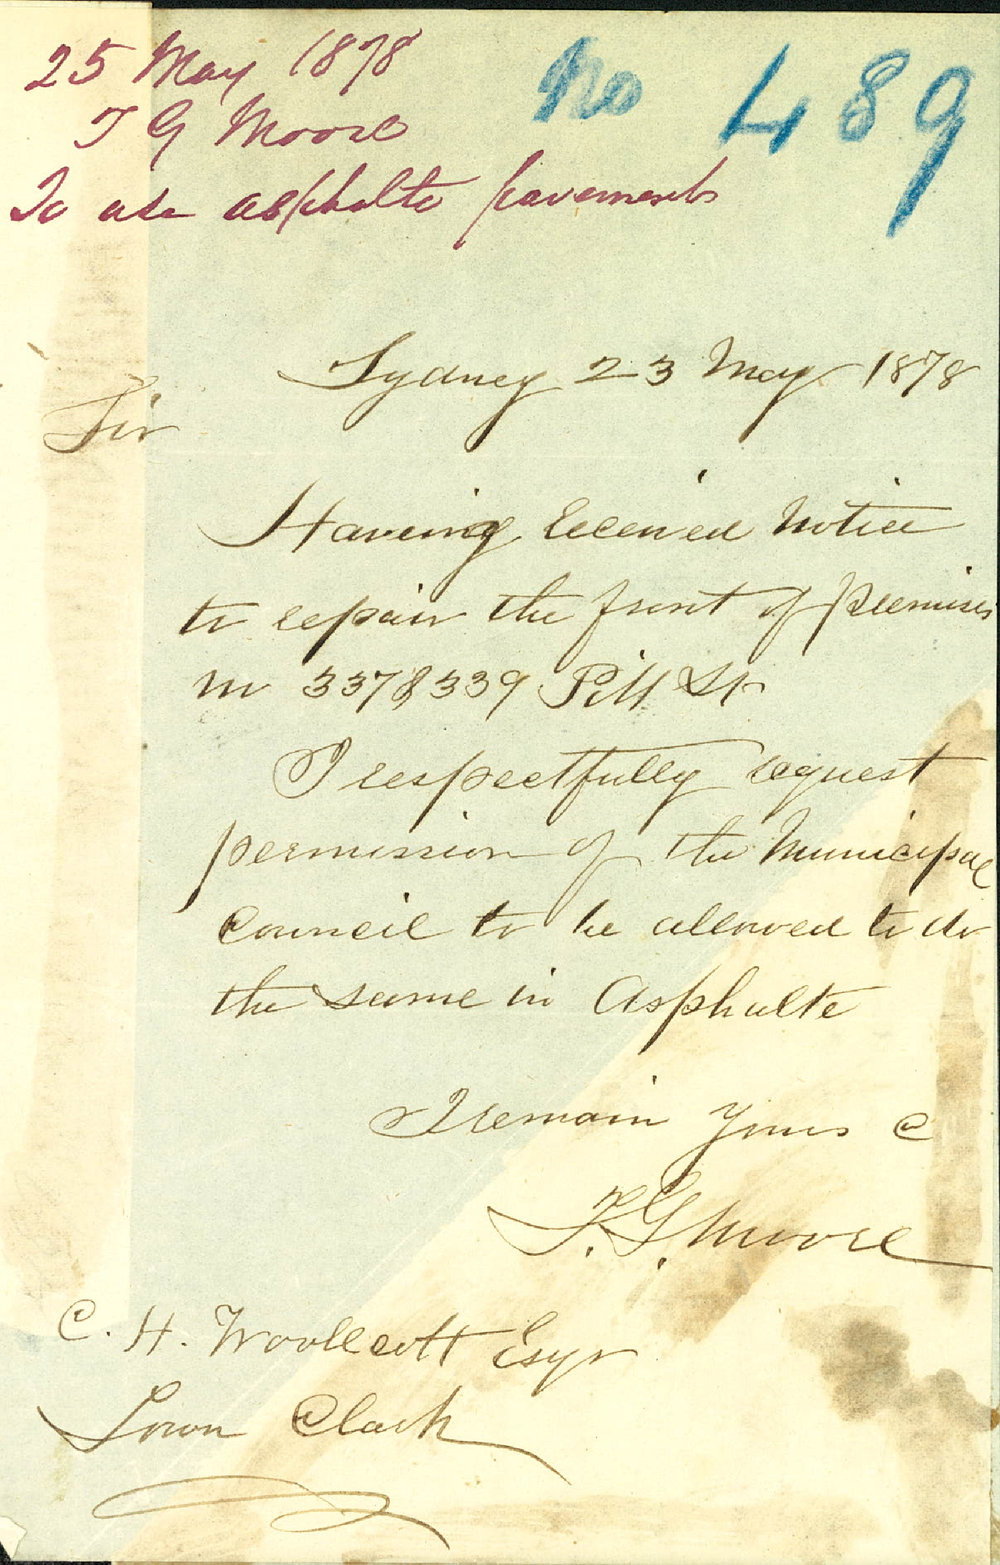 25 May 1878
T G Moore
To use asphalte pavements
No 489
Sydney 23 May 1878
Sir
Haveing Received Notice
to repair the front of premises
in 337 & 339 Pitt St
I respectfully request
permission of the Municipal
Council to be allowed to do
the same in Asphalte
I remain Yours &c
T. G. Moore
C. H. Woollcott Esqr
Town Clark